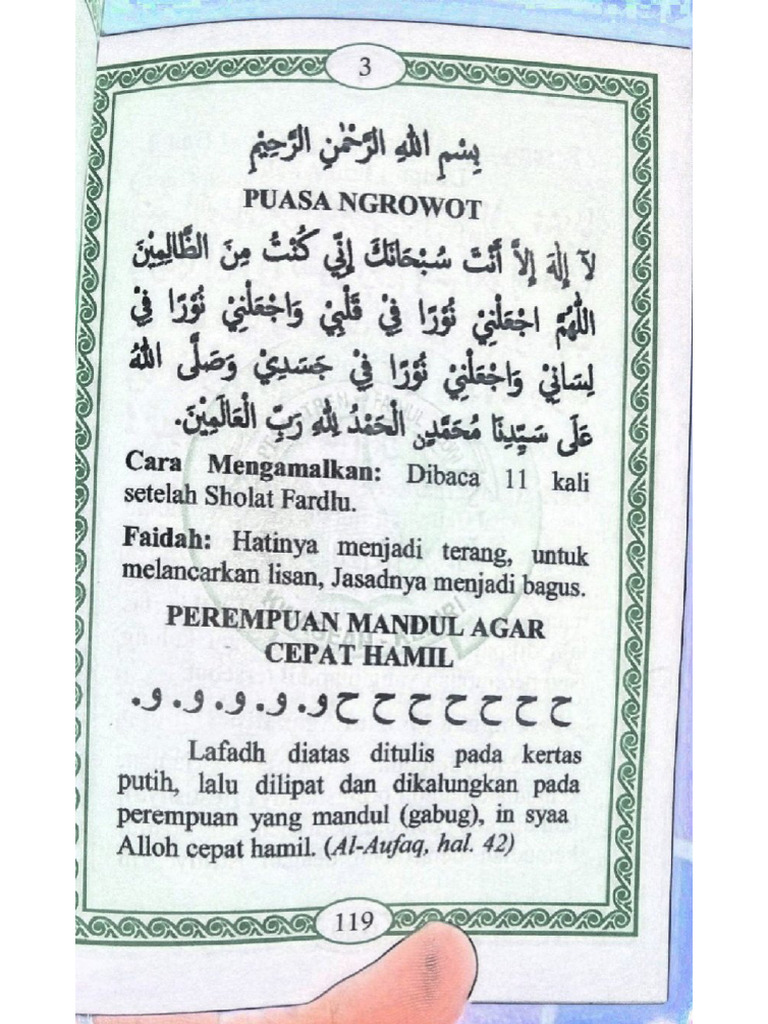 3
بِسْمِ اللهِ الرَّحْمٰنِ الرَّحِيْمِ
PUASA NGROWOT
لَآ إِلٰهَ إِلاَّ أَنْتَ سُبْحَانَكَ إِنِّي كُنْتُ مِنَ الظَّالِمِيْنَ
اَللّٰهُمَّ اجْعَلْنِيْ نُوْرًا فِيْ قَلْبِيْ وَاجْعَلْنِيْ نُوْرًا فِيْ
لِسَانِيْ وَاجْعَلْنِيْ نُوْرًا فِيْ جَسَدِيْ وَصَلَّى اللهُ
عَلَى سَيِّدِنَا مُحَمَّدٍ الْحَمْدُ لِلّٰهِ رَبِّ الْعَالَمِيْنَ.
Cara Mengamalkan: Dibaca 11 kali
setelah Sholat Fardlu.
Faidah: Hatinya menjadi terang, untuk
melancarkan lisan, Jasadnya menjadi bagus.
PEREMPUAN MANDUL AGAR
CEPAT HAMIL
ح ح ح ح ح ح ح و. و. و. و. و.
Lafadh diatas ditulis pada kertas
putih, lalu dilipat dan dikalungkan pada
perempuan yang mandul (gabug), in syaa
Alloh cepat hamil. (Al-Aufaq, hal. 42)
119